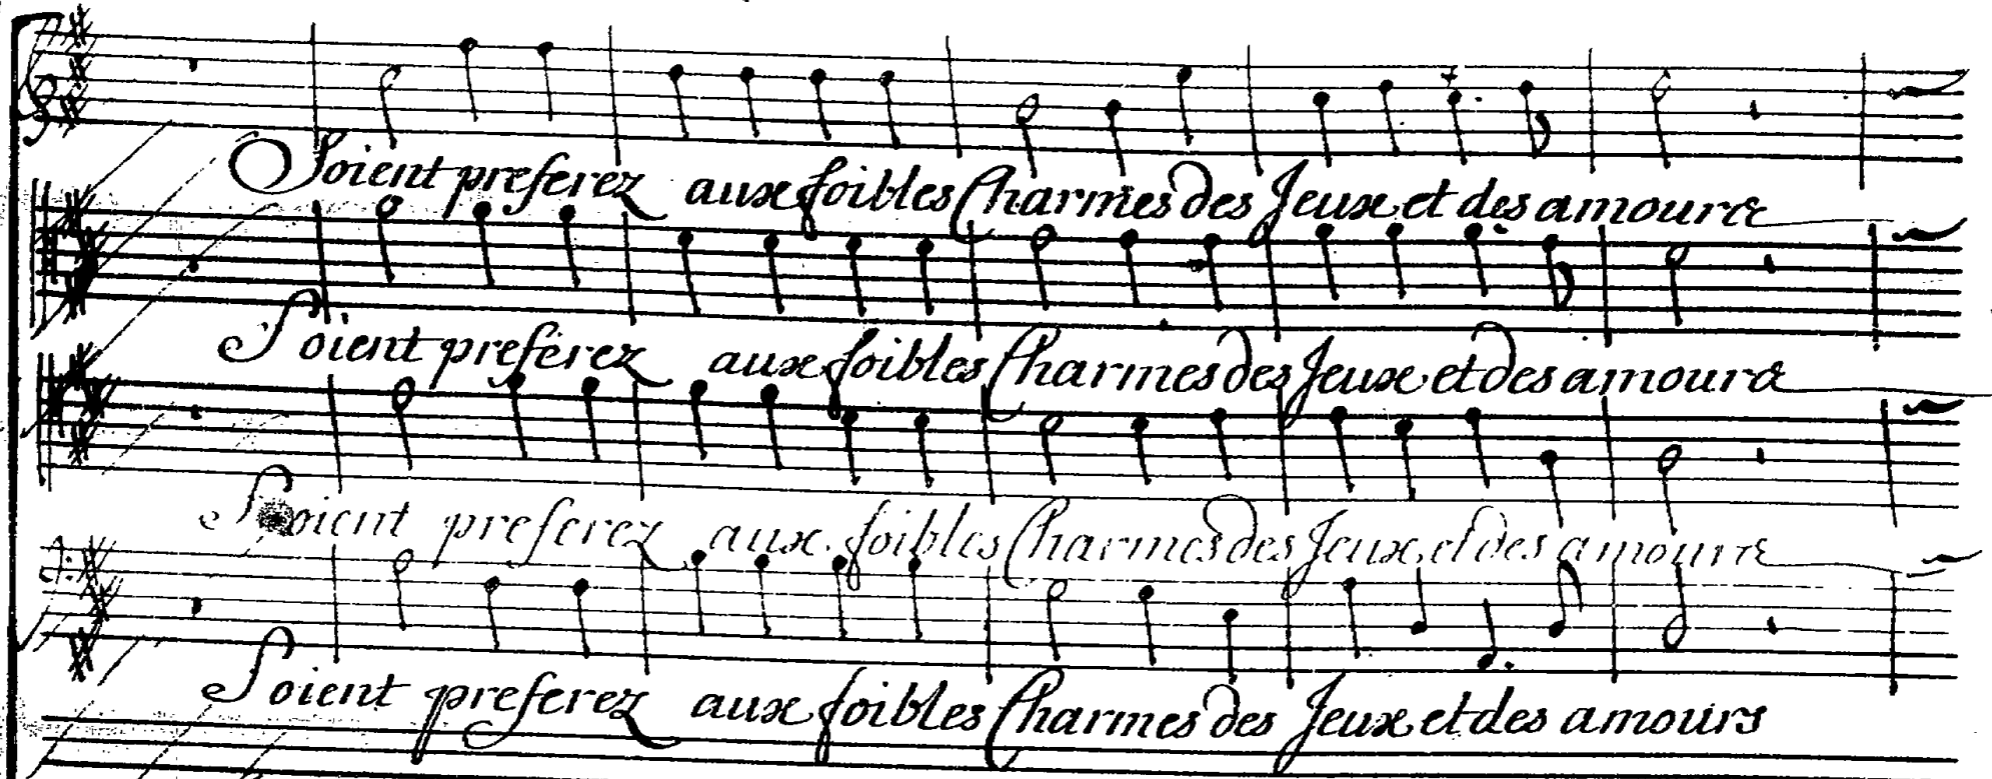 Soient preferez aux foibles Charmes des Jeux et des amours
Soient preferez aux foibles Charmes des Jeux et des amours
Soient preferez aux foibles Charmes des Jeux et des amours
Soient preferez aux foibles Charmes des Jeux et des amours